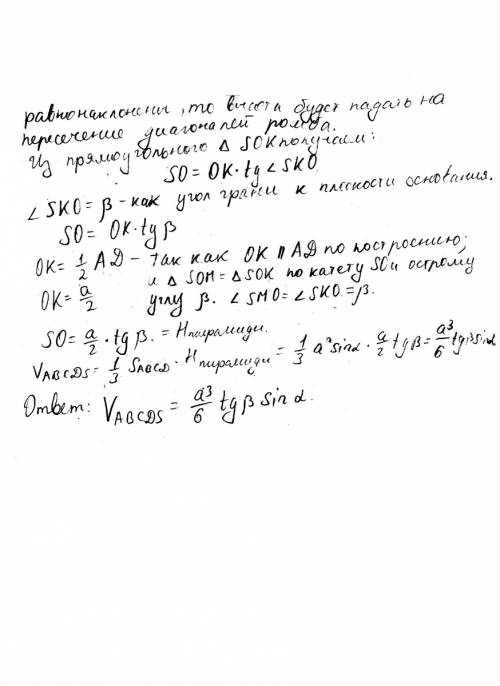 равнонаклонены, то высота будет падать на
пересечение диагоналей ромба.
Из прямоугольного Δ SOK получаем:
SO = OK · tg ∠ SKO
∠ SKO = β - как угол грани к плоскости основания.
SO = OK · tg β
OK = 1/2 АД - так как OK ∥ АД по построению;
и Δ SOM = Δ SOK по катету SO и острому
OK = a/2 углу β. ∠ SMO = ∠ SKO = β.
SO = a/2 · tg β. = Hпирамиды.
V_ABCDS = 1/3 S_ABCD · Hпирамиды = 1/3 a² sin α · a/2 tg β = a³/6 tg β sin α
Ответ: V_ABCDS = a³/6 tg β sin α.